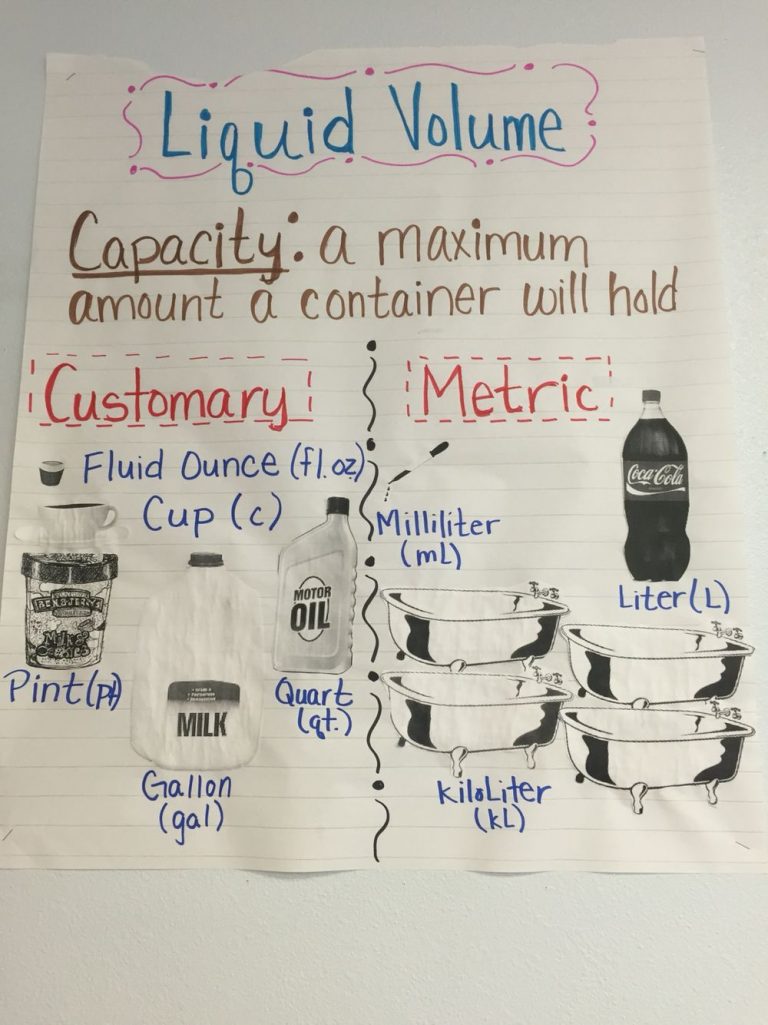 Liquid Volume
Capacity: a maximum
amount a container will hold
Customary
Fluid Ounce (fl. oz)
Cup (c)
MOTOR
OIL
BEN & JERRY'S
Pint (pt)
Quart
(qt.)
MILK
Gallon
(gal)
Metric
Milliliter
(mL)
Coca-Cola
Liter (L)
KiloLiter
(kL)